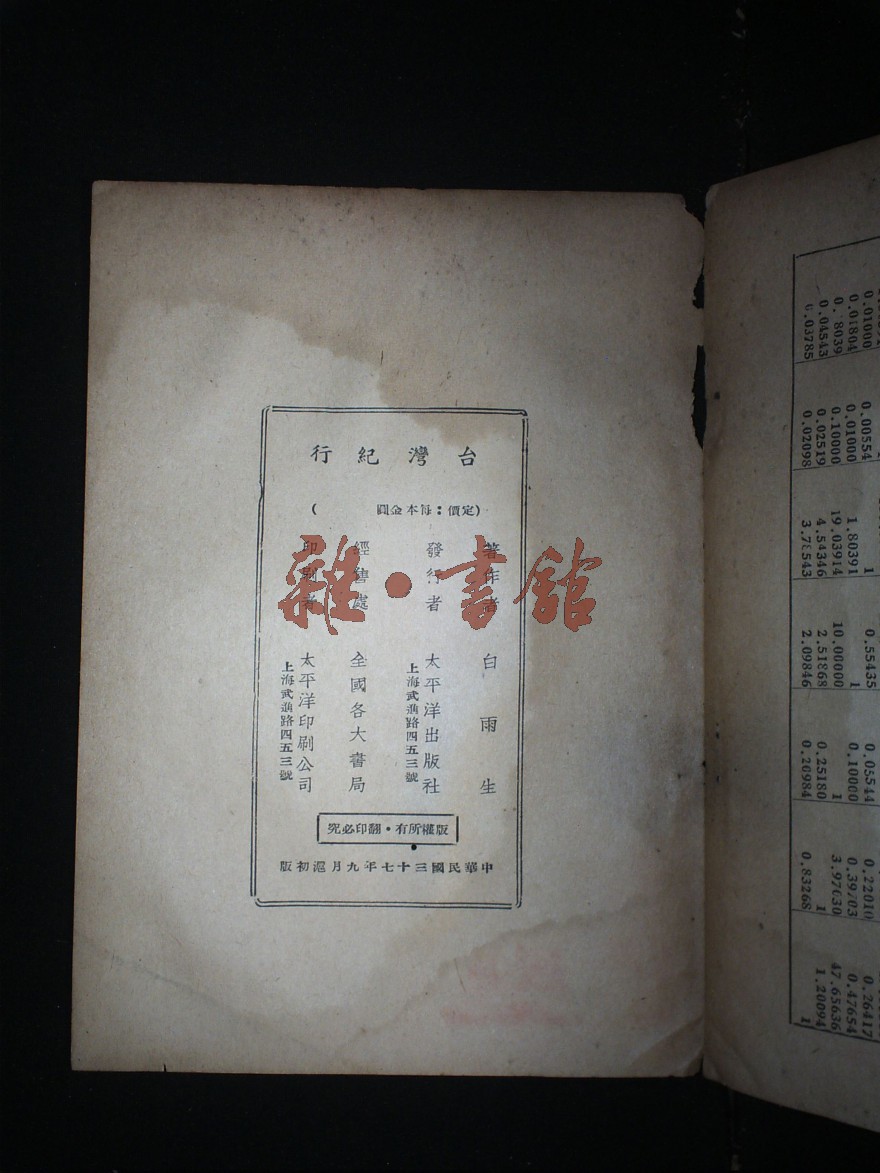 台灣紀行
(定價：每本金圓　　)
著作者　白雨生
發行者　太平洋出版社
上海武進路四五三號
經售處　全國各大書局
印刷者　太平洋印刷公司
上海武進路四五三號
版權所有・翻印必究
中華民國三十七年九月滬初版
雜・書館
0.01000
0.01804
0.04543
0.03785
0.00554
0.01000
0.10000
0.02519
0.02098
1
1.80391
19.03914
4.54346
3.78543
0.55435
1
10.00000
2.51868
2.09846
0.05544
0.10000
1
0.25180
0.20984
0.22010
0.39703
3.97030
1
0.83268
0.26417
0.47654
47.65636
1.20094
1